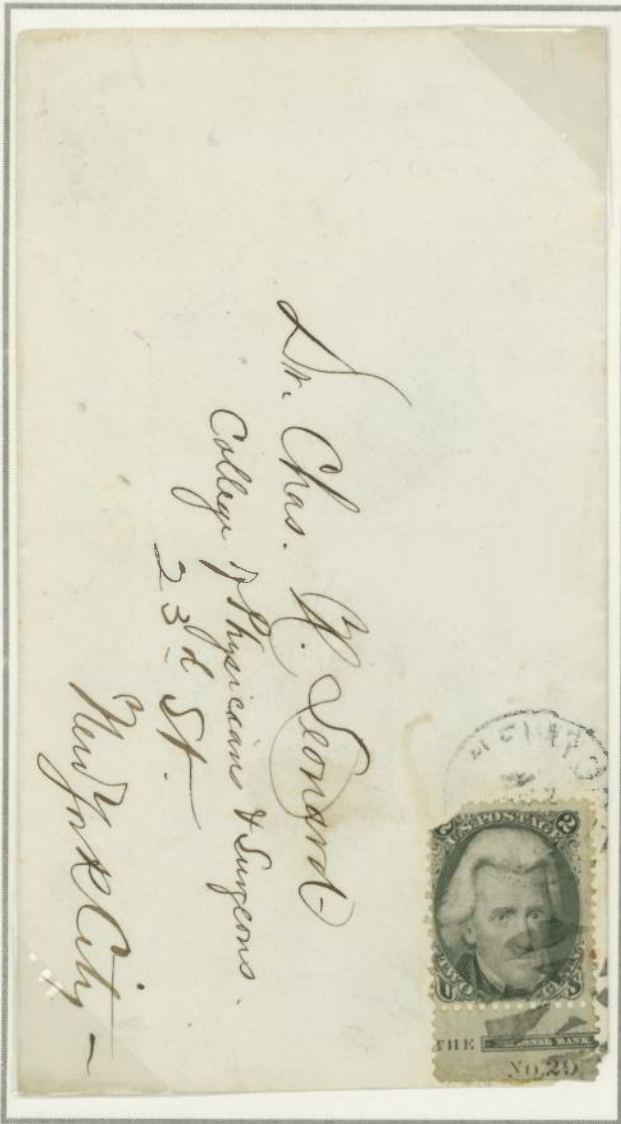 Dr. Chas. H. Leonard
College of Physicians & Surgeons.
23rd St.
New York City
U.S. POSTAGE
2 2
U S
THE NATIONAL BANK
No. 29